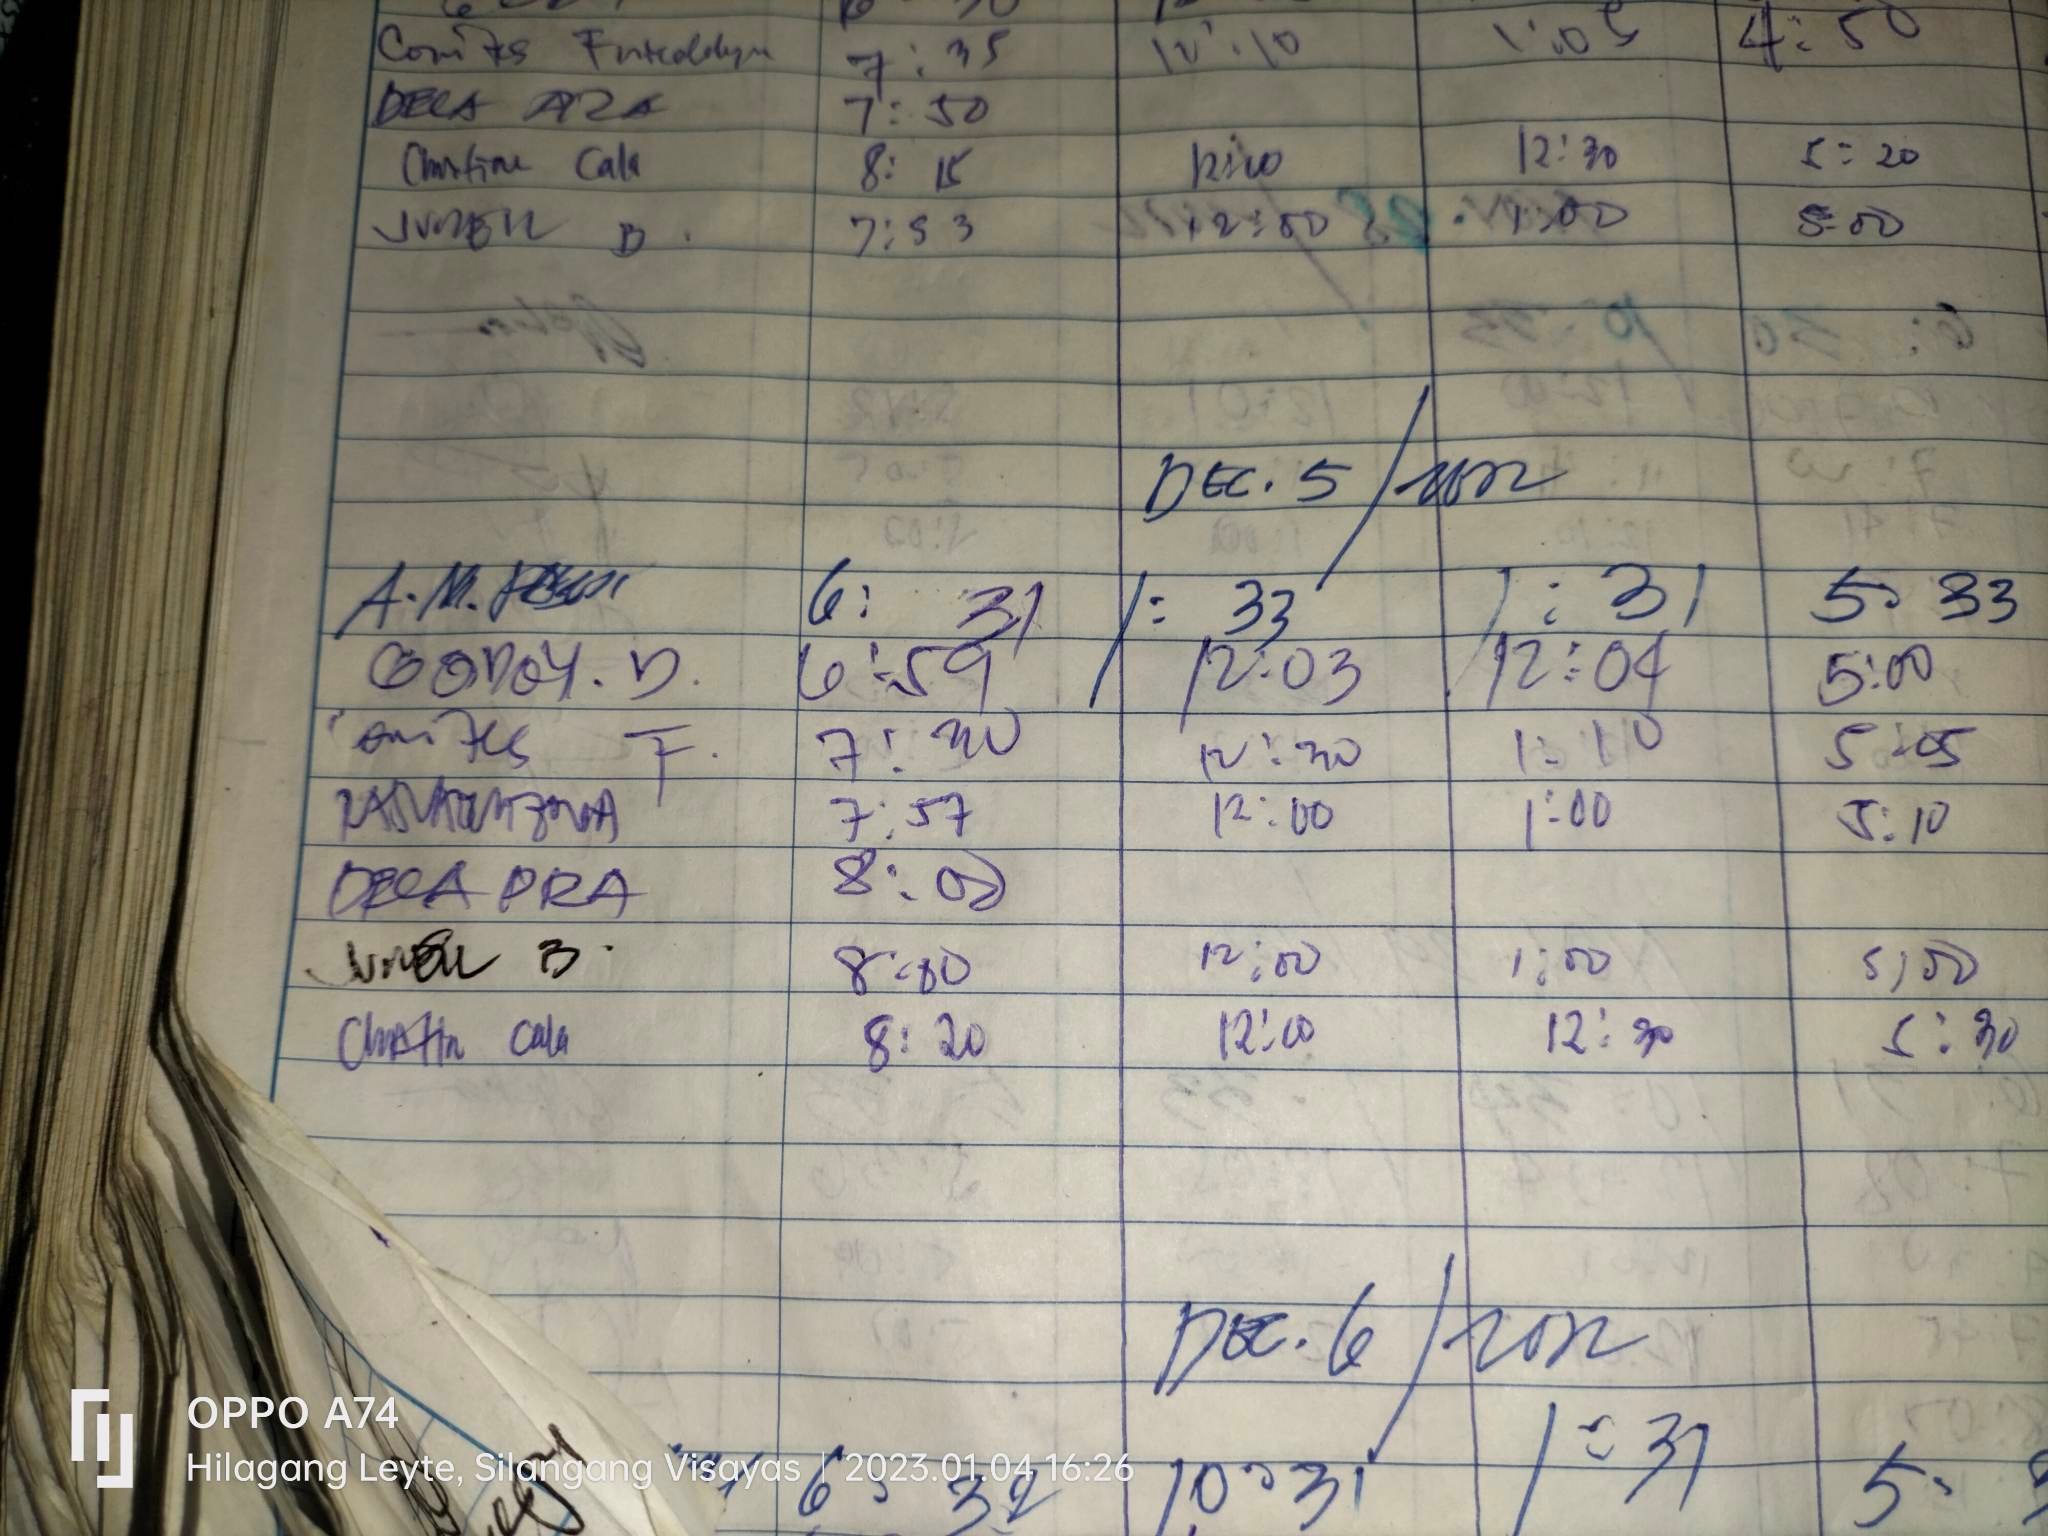 7:35 12:10 1:05 4:50
DELA PRA 7:50
Christine Cala 8:15 12:00 12:30 5:20
B. 7:53 12:00 1:00 5:00
DEC. 5/2022
A.M. 6:31 1:33 1:31 5:33
GODOY. D. 6:59 12:03 12:04 5:00
F. 7:30 12:30 1:10 5:05
7:57 12:00 1:00 5:10
DELA PRA 8:00
B. 8:00 12:00 1:00 5:00
Christin Cala 8:20 12:00 12:30 5:30
DEC. 6/2022
6:32 10:31 1:31 5:
OPPO A74
Hilagang Leyte, Silangang Visayas | 2023.01.04 16:26